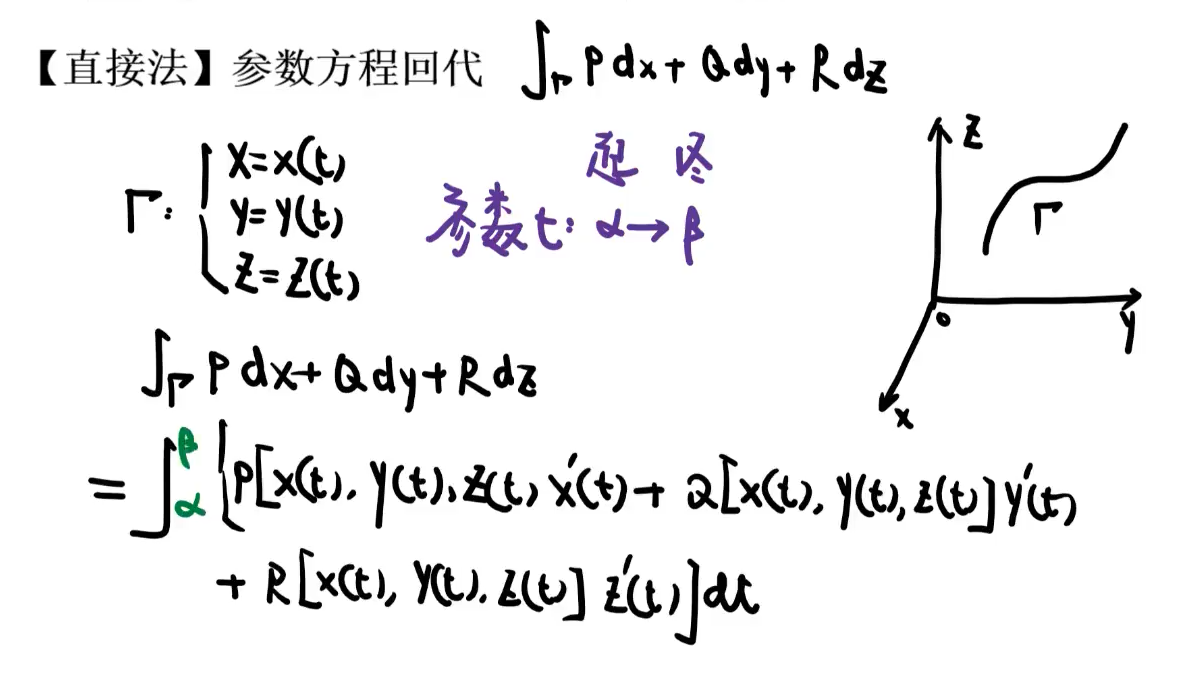 【直接法】参数方程回代 ∫_Γ Pdx+Qdy+Rdz
Γ: { x=x(t)
y=y(t)
z=z(t)
起 终
参数t: α→β
z
Γ
o
y
x
∫_Γ Pdx+Qdy+Rdz
=∫_α^β {P[x(t), y(t), z(t) x'(t)+Q[x(t), y(t), z(t)]y'(t)
+R[x(t), y(t), z(t)] z'(t)]dt